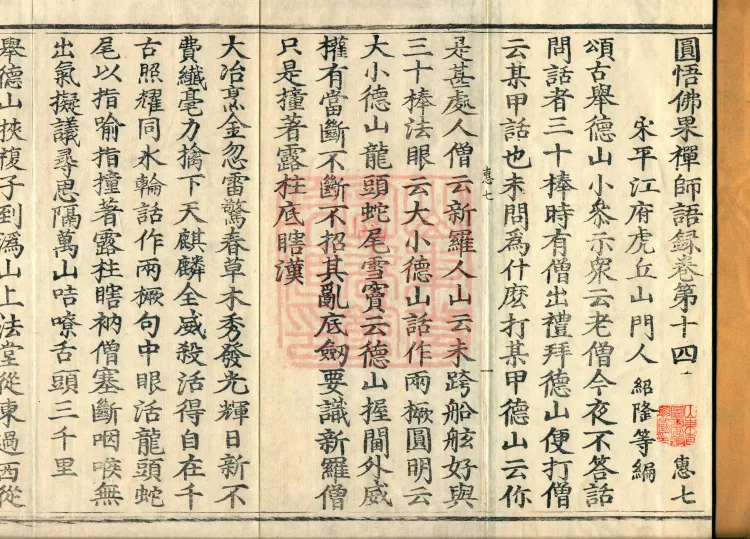 圓悟佛果禪師語録卷第十四 惠七
宋平江府虎丘山門人 紹隆等編
頌古舉德山小叅示衆云老僧今夜不答話
問話者三十棒時有僧出禮拜德山便打僧
云某甲話也未問爲什麽打某甲德山云你
惠七
是甚處人僧云新羅人山云未跨船舷好與
三十棒法眼云大小德山話作兩橛圓明云
大小德山龍頭蛇尾雪竇云德山握閫外威
權有當斷不斷不招其亂底劒要識新羅僧
只是撞著露柱底瞎漢
大冶烹金忽雷驚春草木秀發光輝日新不
費纖毫力擒下天麒麟全威殺活得自在千
古照耀同氷輪話作兩橛句中眼活龍頭蛇
尾以指喻指撞著露柱瞎衲僧塞斷咽喉無
出氣擬議尋思隔萬山咭嘹舌頭三千里
舉德山挾複子到潙山上法堂從東過西從